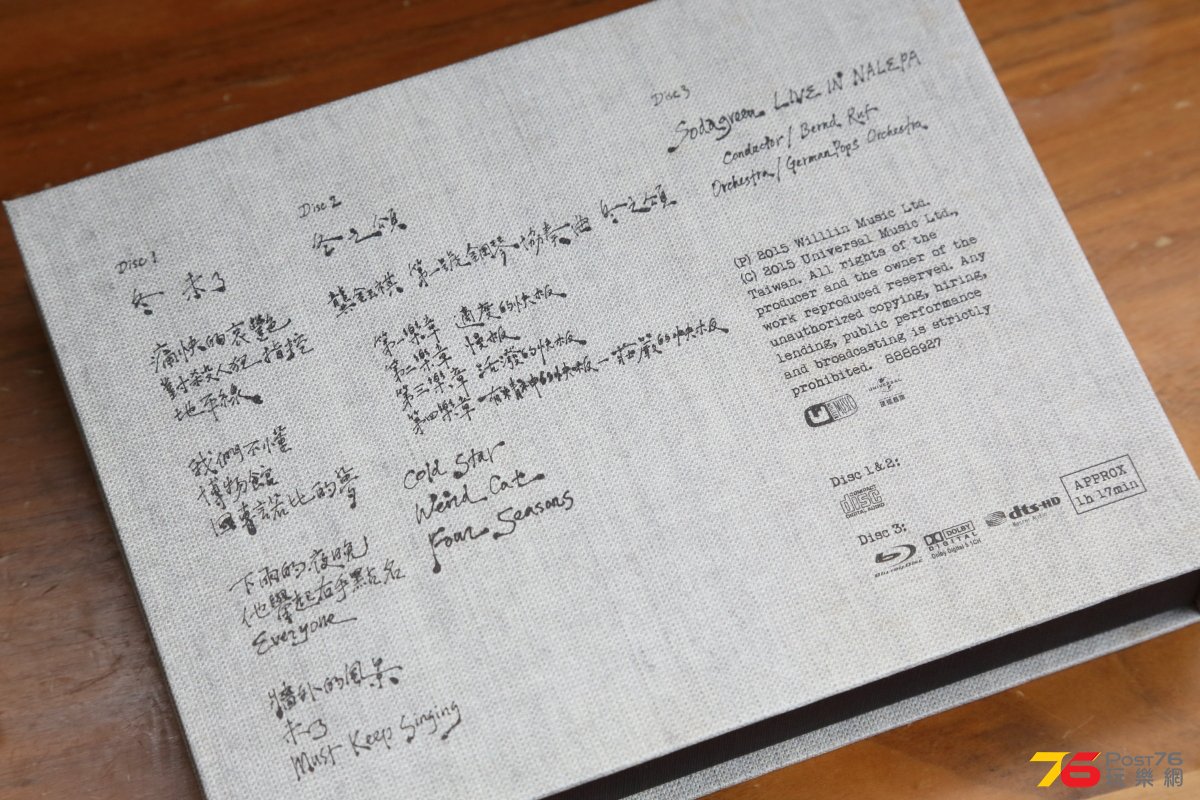 Disc 1
冬 未了
痛快的哀艷
對殺人犯指控
地平線
我們不懂
博物館
回專諾比的夢
下雨的夜晚
他舉起右手點名
Everyone
牆外的風景
未了
Must Keep Singing
Disc 2
冬之頌
龔鈺祺 第一號鋼琴協奏曲 冬之頌
第一樂章 適度的快板
第二樂章 慢板
第三樂章 活潑的快板
第四樂章 有精神的快板－莊嚴的快板
Cold Star
Weird Cat
Four Seasons
Disc 3
Sodagreen LIVE IN NALEPA
Conductor / Bernd Ruf
Orchestra / GermanPops Orchestra
(P) 2015 Willlin Music Ltd.
(C) 2015 Universal Music Ltd.,
Taiwan. All rights of the
producer and the owner of the
work reproduced reserved. Any
unauthorized copying, hiring,
lending, public performance
and broadcasting is strictly
prohibited. 8888927
UNIVERSAL
環球唱片
Disc 1&2:
COMPACT
DISC
DIGITAL AUDIO
Disc 3:
Blu-ray Disc
DOLBY
DIGITAL
Dolby Digital 5.1CH
dts-HD
Master Audio
APPROX
1h 17min
76 POST76
玩樂網